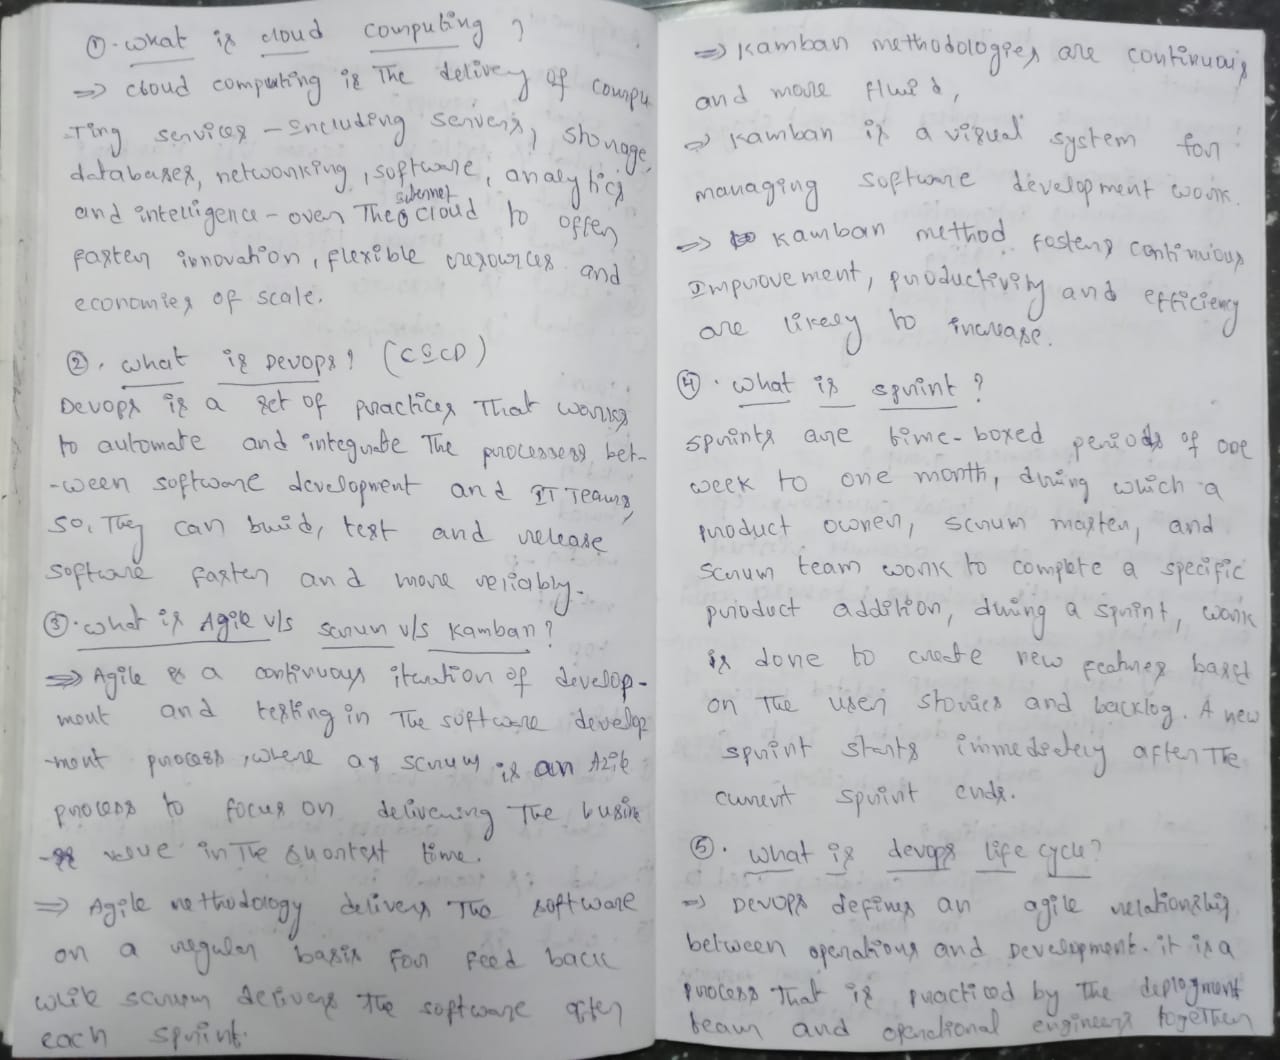 ①. what is cloud computing ?
=> cloud computing is The delivery of compu
Ting services - Including servers, storage,
databases, networking, software, analytics
internet
and intelligence - over The cloud to offer
faster innovation, flexible resources and
economies of scale.
②. what is Devops? (CICD)
Devops is a set of practices That works
to automate and integrate The processess bet-
-ween software development and IT Teams,
so, They can buid, test and release
software faster and more reliably.
③. what is Agile v/s scrum v/s Kamban?
=> Agile is a continuous iteration of develop-
ment and testing in The software develop
-ment process, where as scrum is an Agile
process to focus on delivering The busine
-ss value in The shortest time.
=> Agile methodology delivers The software
on a regular basis for feed back
while scrum delivers The software after
each sprint.
=> Kamban methodologies are continuous
and more fluid,
=> Kamban is a visual system for
managing software development work.
=> Kamban method fosters continuious
Improvement, productivity and efficiency
are likely to increase.
④. what is sprint?
sprints are time-boxed periods of one
week to one month, during which a
product owner, scrum master, and
scrum team work to complete a specific
product addition, during a sprint, work
is done to create new features based
on The user stories and backlog. A new
sprint starts immedietely after The
current sprint ends.
⑤. what is devops life cycle?
=> Devops defines an agile relationship
between operations and Development. it is a
process That is practiced by The deployment
team and operational engineers together